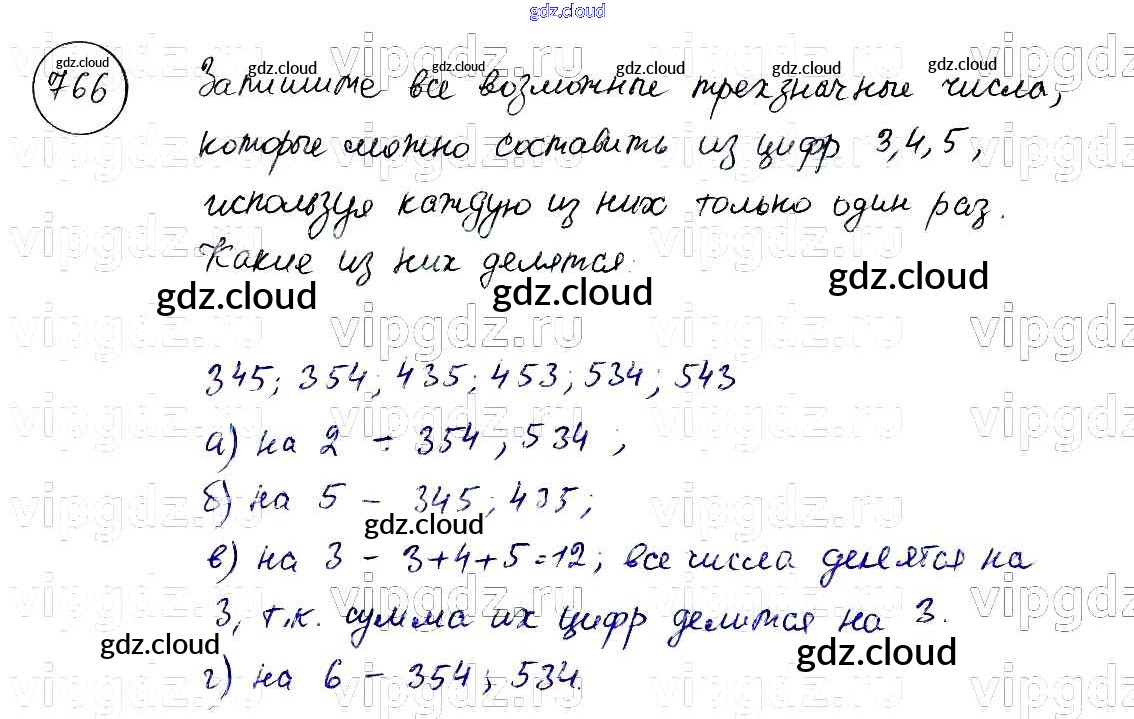 gdz.cloud
gdz.cloud
766
gdz.cloud gdz.cloud gdz.cloud gdz.cloud
Запишите все возможные трехзначные числа,
которые можно составить из цифр 3,4,5,
используя каждую из них только один раз.
Какие из них делятся:
gdz.cloud gdz.cloud gdz.cloud
345; 354; 435; 453; 534; 543
а) на 2 - 354; 534;
б) на 5 - 345; 435;
gdz.cloud
в) на 3 - 3+4+5=12; все числа делятся на
3, т.к. сумма их цифр делится на 3.
gdz.cloud gdz.cloud
г) на 6 - 354; 534.
vipgdz.ru